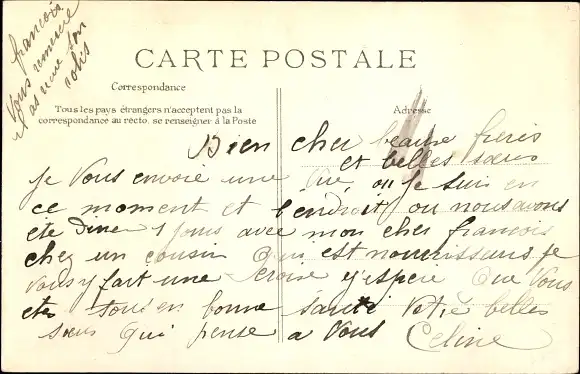 françois
Vous remercie
il as reçue son
colis
CARTE POSTALE
Correspondance
Tous les pays étrangers n'acceptent pas la
correspondance au recto. se renseigner à la Poste
Adresse
Bien cher beause freris
et belles sœurs
je Vous envoie une Vue, ou je suis en
ce moment et lendroit ou nous avons
ete Diner 1 jours avec mon cher françois
chez un cousin Qui est nourrisseur je
vous y fait une croise y'espere Que Vous
etes tous en bonne santé Votre belles
sœur Qui pense a Vous Celine